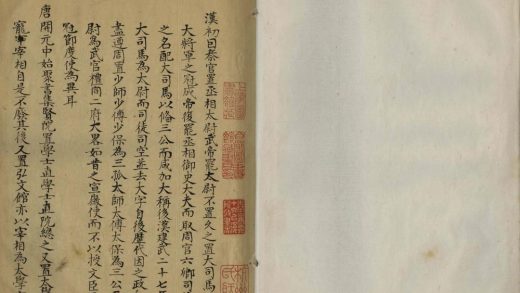 漢初因秦官置丞相太尉武帝罷太尉不置久之置大司馬
大將軍之府成帝後罷丞相御史大夫而取周官六卿司
之名配大司馬以備三公而咸加大稱後漢建武二十七
大司馬為太尉而司徒司空並去大字自後歷代因之政
盡遵周置少師少傅少保為三孤太師太傅太保為三公
尉為武官權同二府大畧如昔之宣徽使而不以授文臣
節度使為異耳
唐開元中始聚書集賢院置學士直學士直院總之又置大
寵宰相自是不廢其後又置弘文館亦以宰相為大學